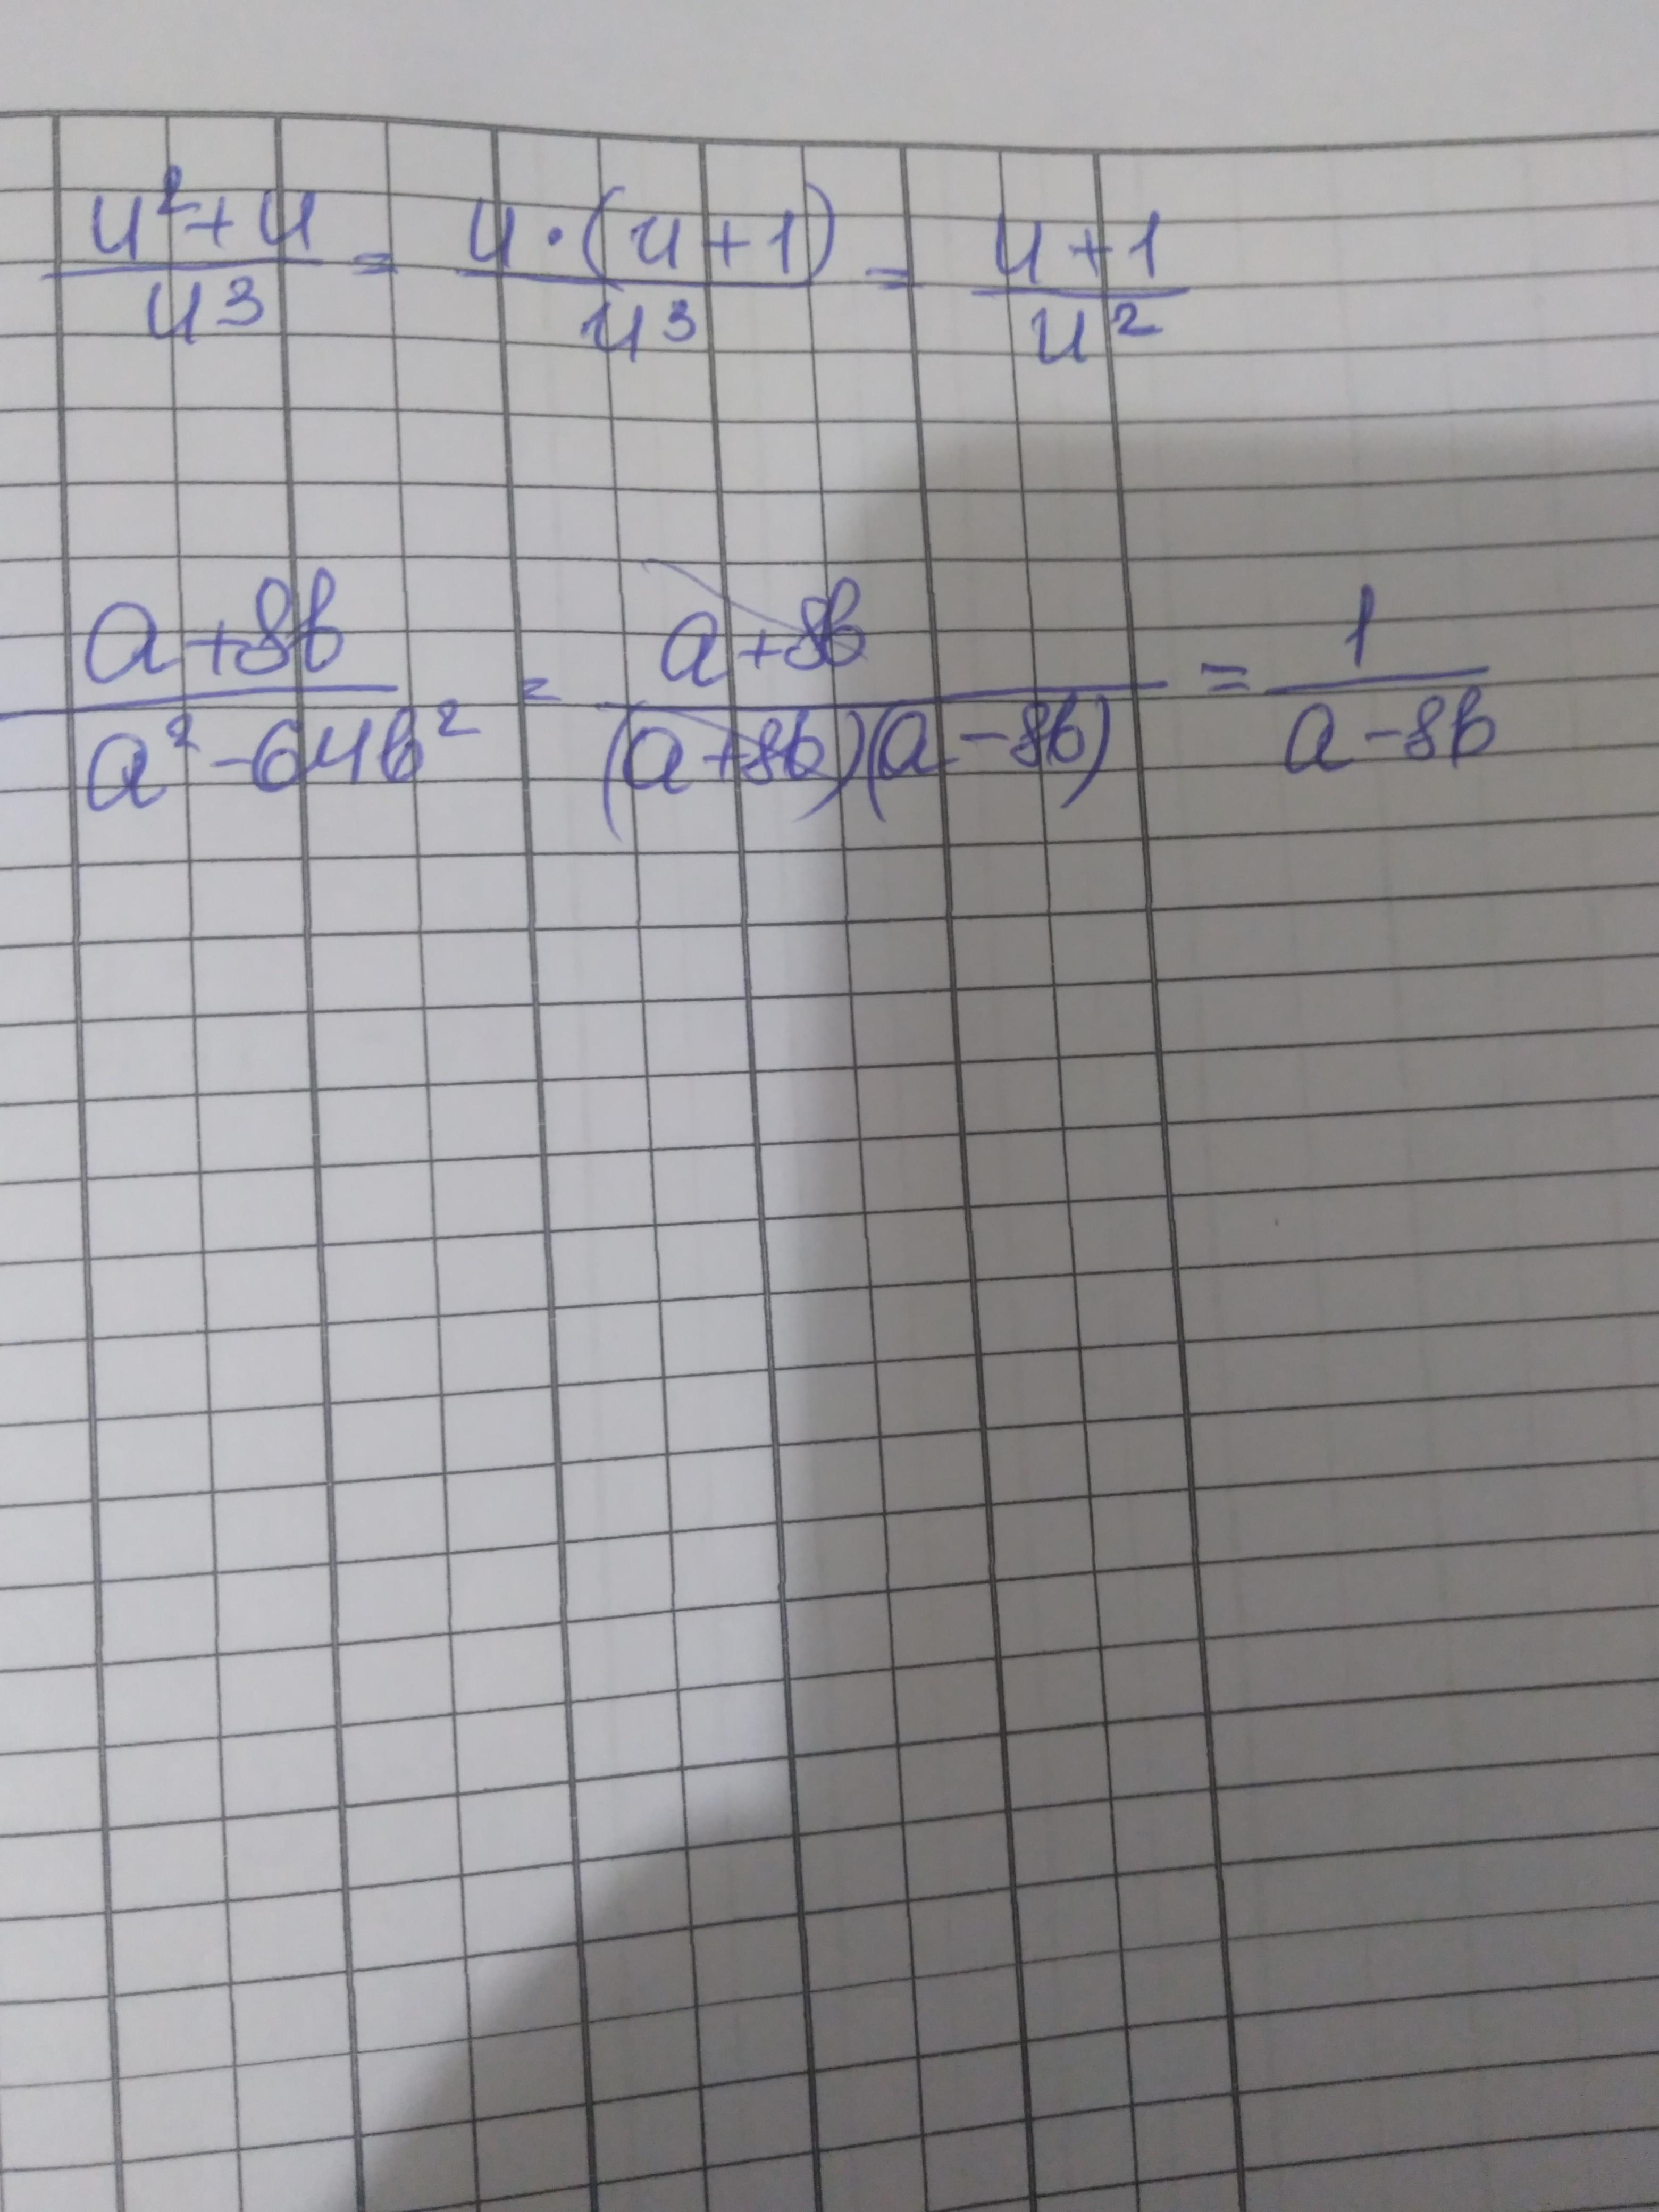 (u²+u)/u³ = (u·(u+1))/u³ = (u+1)/u²
(a+8b)/(a²-64b²) = (a+8b)/((a+8b)(a-8b)) = 1/(a-8b)